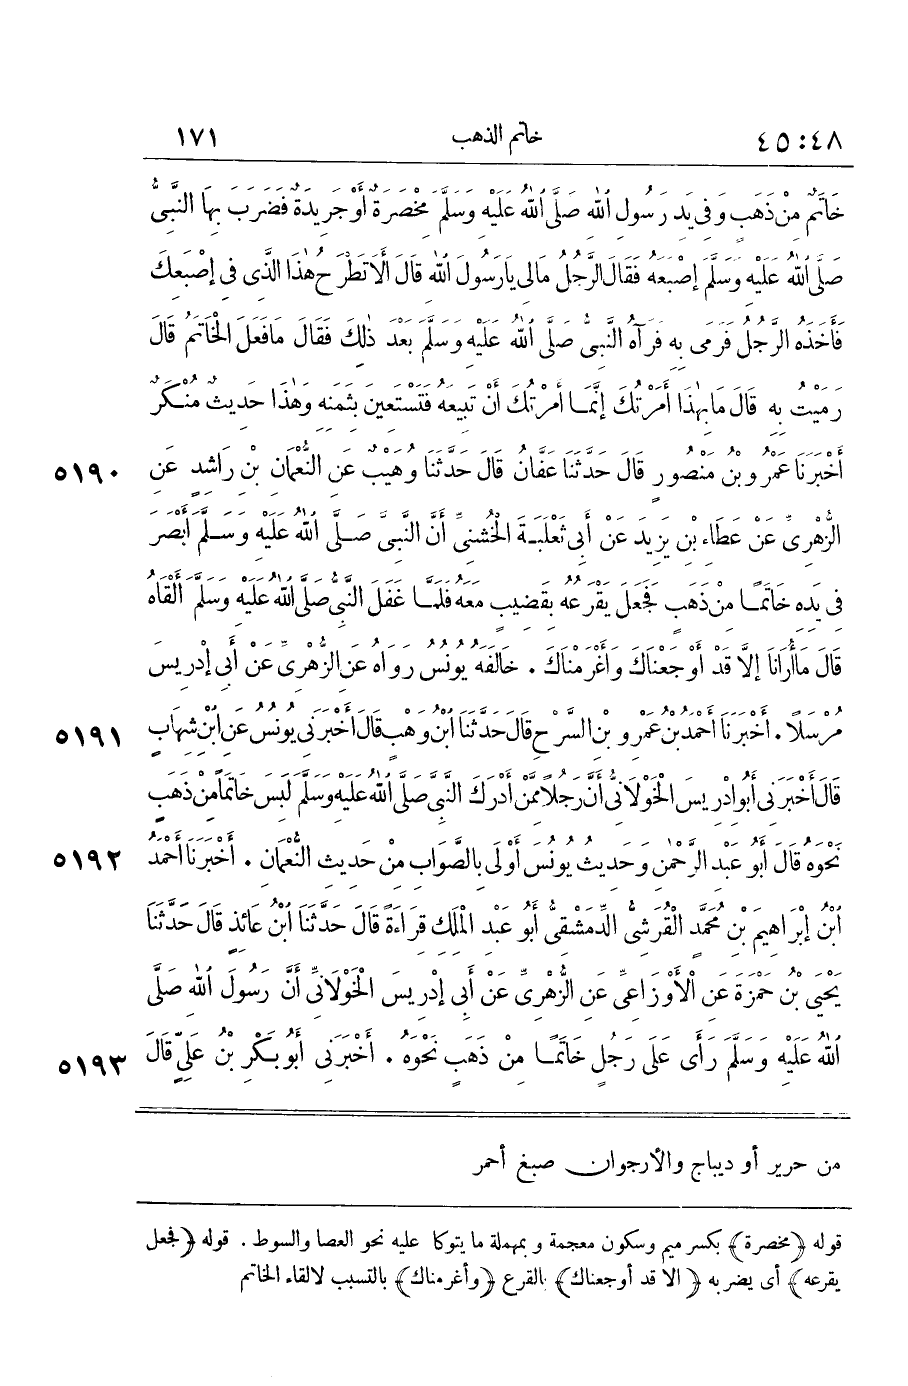 ٤٥:٤٨ خاتم الذهب ١٧١
خَاتَمٌ مِنْ ذَهَبٍ وَفِي يَدِ رَسُولِ اللهِ صَلَّى اللهُ عَلَيْهِ وَسَلَّمَ مِخْصَرَةٌ أَوْ جَرِيدَةٌ فَضَرَبَ بِهَا النَّبِيُّ
صَلَّى اللهُ عَلَيْهِ وَسَلَّمَ إِصْبَعَهُ فَقَالَ الرَّجُلُ مَالِي يَا رَسُولَ اللهِ قَالَ أَلَا تَطْرَحُ هٰذَا الَّذِي فِي إِصْبَعِكَ
فَأَخَذَهُ الرَّجُلُ فَرَمَى بِهِ فَرَآهُ النَّبِيُّ صَلَّى اللهُ عَلَيْهِ وَسَلَّمَ بَعْدَ ذٰلِكَ فَقَالَ مَا فَعَلَ الْخَاتَمُ قَالَ
رَمَيْتُ بِهِ قَالَ مَا بِهٰذَا أَمَرْتُكَ إِنَّمَا أَمَرْتُكَ أَنْ تَبِيعَهُ فَتَسْتَعِينَ بِثَمَنِهِ وَهٰذَا حَدِيثٌ مُنْكَرٌ
أَخْبَرَنَا عَمْرُو بْنُ مَنْصُورٍ قَالَ حَدَّثَنَا عَفَّانُ قَالَ حَدَّثَنَا وُهَيْبٌ عَنِ النُّعْمَانِ بْنِ رَاشِدٍ عَنِ ٥١٩٠
الزُّهْرِيِّ عَنْ عَطَاءِ بْنِ يَزِيدَ عَنْ أَبِي ثَعْلَبَةَ الْخُشَنِيِّ أَنَّ النَّبِيَّ صَلَّى اللهُ عَلَيْهِ وَسَلَّمَ أَبْصَرَ
فِي يَدِهِ خَاتَمًا مِنْ ذَهَبٍ فَجَعَلَ يَقْرَعُهُ بِقَضِيبٍ مَعَهُ فَلَمَّا غَفَلَ النَّبِيُّ صَلَّى اللهُ عَلَيْهِ وَسَلَّمَ أَلْقَاهُ
قَالَ مَا أُرَانَا إِلَّا قَدْ أَوْجَعْنَاكَ وَأَغْرَمْنَاكَ . خَالَفَهُ يُونُسُ رَوَاهُ عَنِ الزُّهْرِيِّ عَنْ أَبِي إِدْرِيسَ
مُرْسَلًا . أَخْبَرَنَا أَحْمَدُ بْنُ عَمْرِو بْنِ السَّرْحِ قَالَ حَدَّثَنَا ابْنُ وَهْبٍ قَالَ أَخْبَرَنِي يُونُسُ عَنِ ابْنِ شِهَابٍ ٥١٩١
قَالَ أَخْبَرَنِي أَبُو إِدْرِيسَ الْخَوْلَانِيُّ أَنَّ رَجُلًا مِمَّنْ أَدْرَكَ النَّبِيَّ صَلَّى اللهُ عَلَيْهِ وَسَلَّمَ لَبِسَ خَاتَمًا مِنْ ذَهَبٍ
نَحْوَهُ قَالَ أَبُو عَبْدِ الرَّحْمٰنِ وَحَدِيثُ يُونُسَ أَوْلَى بِالصَّوَابِ مِنْ حَدِيثِ النُّعْمَانِ . أَخْبَرَنَا أَحْمَدُ ٥١٩٢
ابْنُ إِبْرَاهِيمَ بْنِ مُحَمَّدٍ الْقُرَشِيُّ الدِّمَشْقِيُّ أَبُو عَبْدِ الْمَلِكِ قِرَاءَةً قَالَ حَدَّثَنَا ابْنُ عَائِذٍ قَالَ حَدَّثَنَا
يَحْيَى بْنُ حَمْزَةَ عَنِ الْأَوْزَاعِيِّ عَنِ الزُّهْرِيِّ عَنْ أَبِي إِدْرِيسَ الْخَوْلَانِيِّ أَنَّ رَسُولَ اللهِ صَلَّى
اللهُ عَلَيْهِ وَسَلَّمَ رَأَى عَلَى رَجُلٍ خَاتَمًا مِنْ ذَهَبٍ نَحْوَهُ . أَخْبَرَنِي أَبُو بَكْرِ بْنُ عَلِيٍّ قَالَ ٥١٩٣
من حرير أو ديباج والأرجوان صبغ أحمر
قوله ﴿مخصرة﴾ بكسر ميم وسكون معجمة وبمهملة ما يتوكا عليه نحو العصا والسوط . قوله ﴿فجعل
يقرعه﴾ أى يضربه ﴿الا قد أوجعناك﴾ بالقرع ﴿وأغرمناك﴾ بالتسبب لالقاء الخاتم